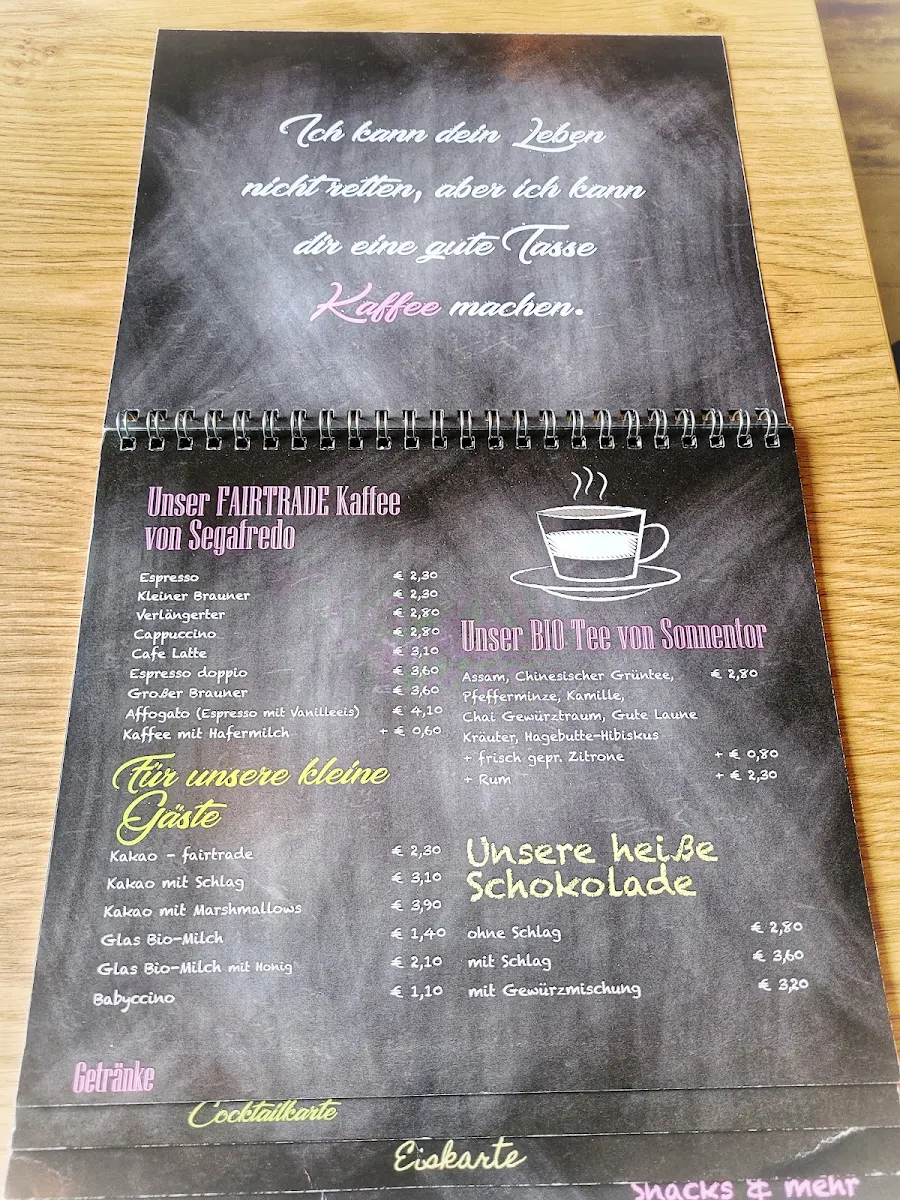 Ich kann dein Leben
nicht retten, aber ich kann
dir eine gute Tasse
Kaffee machen.
Unser FAIRTRADE Kaffee
von Segafredo
Espresso € 2,30
Kleiner Brauner € 2,30
Verlängerter € 2,80
Cappuccino € 2,80
Cafe Latte € 3,10
Espresso doppio € 3,60
Großer Brauner € 3,60
Affogato (Espresso mit Vanilleeis) € 4,10
Kaffee mit Hafermilch + € 0,60
Für unsere kleine
Gäste
Kakao - fairtrade € 2,30
Kakao mit Schlag € 3,10
Kakao mit Marshmallows € 3,90
Glas Bio-Milch € 1,40
Glas Bio-Milch mit Honig € 2,10
Babyccino € 1,10
Unser BIO Tee von Sonnentor
Assam, Chinesischer Grüntee, € 2,80
Pfefferminze, Kamille,
Chai Gewürztraum, Gute Laune
Kräuter, Hagebutte-Hibiskus
+ frisch gepr. Zitrone + € 0,80
+ Rum + € 2,30
Unsere heiße
Schokolade
ohne Schlag € 2,80
mit Schlag € 3,60
mit Gewürzmischung € 3,20
Getränke
Cocktailkarte
Eiskarte
Snacks & mehr